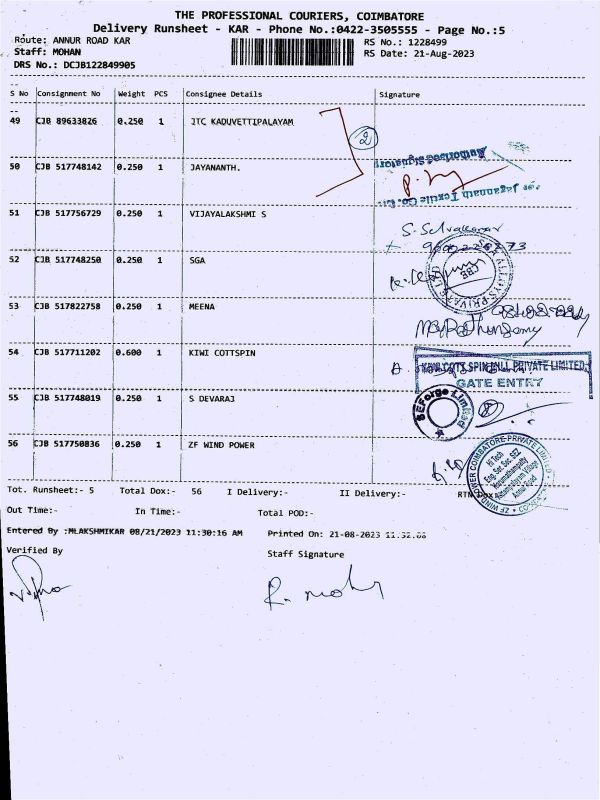 THE PROFESSIONAL COURIERS, COIMBATORE
Delivery Runsheet - KAR - Phone No.:0422-3505555 - Page No.:5
Route: ANNUR ROAD KAR RS No.: 1228499
Staff: MOHAN RS Date: 21-Aug-2023
DRS No.: DCJB122849905
S No Consignment No Weight PCS Consignee Details Signature
49 CJB 89633826 0.250 1 ITC KADUVETTIPALAYAM
2
50 CJB 517748142 0.250 1 JAYANANTH.
Authorised Signatory
For Jagannath Textile Co. Ltd.
51 CJB 517756729 0.250 1 VIJAYALAKSHMI S
S. Selvakumar
52 CJB 517748250 0.250 1 SGA
53 CJB 517822758 0.250 1 MEENA
54 CJB 517711202 0.600 1 KIWI COTTSPIN
SPIN MILL PRIVATE LIMITED
GATE ENTRY
55 CJB 517748019 0.250 1 S DEVARAJ
SEForge Limited
8
56 CJB 517750836 0.250 1 ZF WIND POWER
ZF WIND POWER COIMBATORE PRIVATE LIMITED
Hi Tech
Eng. Sec. SEZ
Annur Road
Tot. Runsheet:- 5 Total Dox:- 56 I Delivery:- II Delivery:- RTN Dox
Out Time:- In Time:- Total POD:-
Entered By :MLAKSHMIKAR 08/21/2023 11:30:16 AM Printed On: 21-08-2023
Verified By Staff Signature
R. mohn